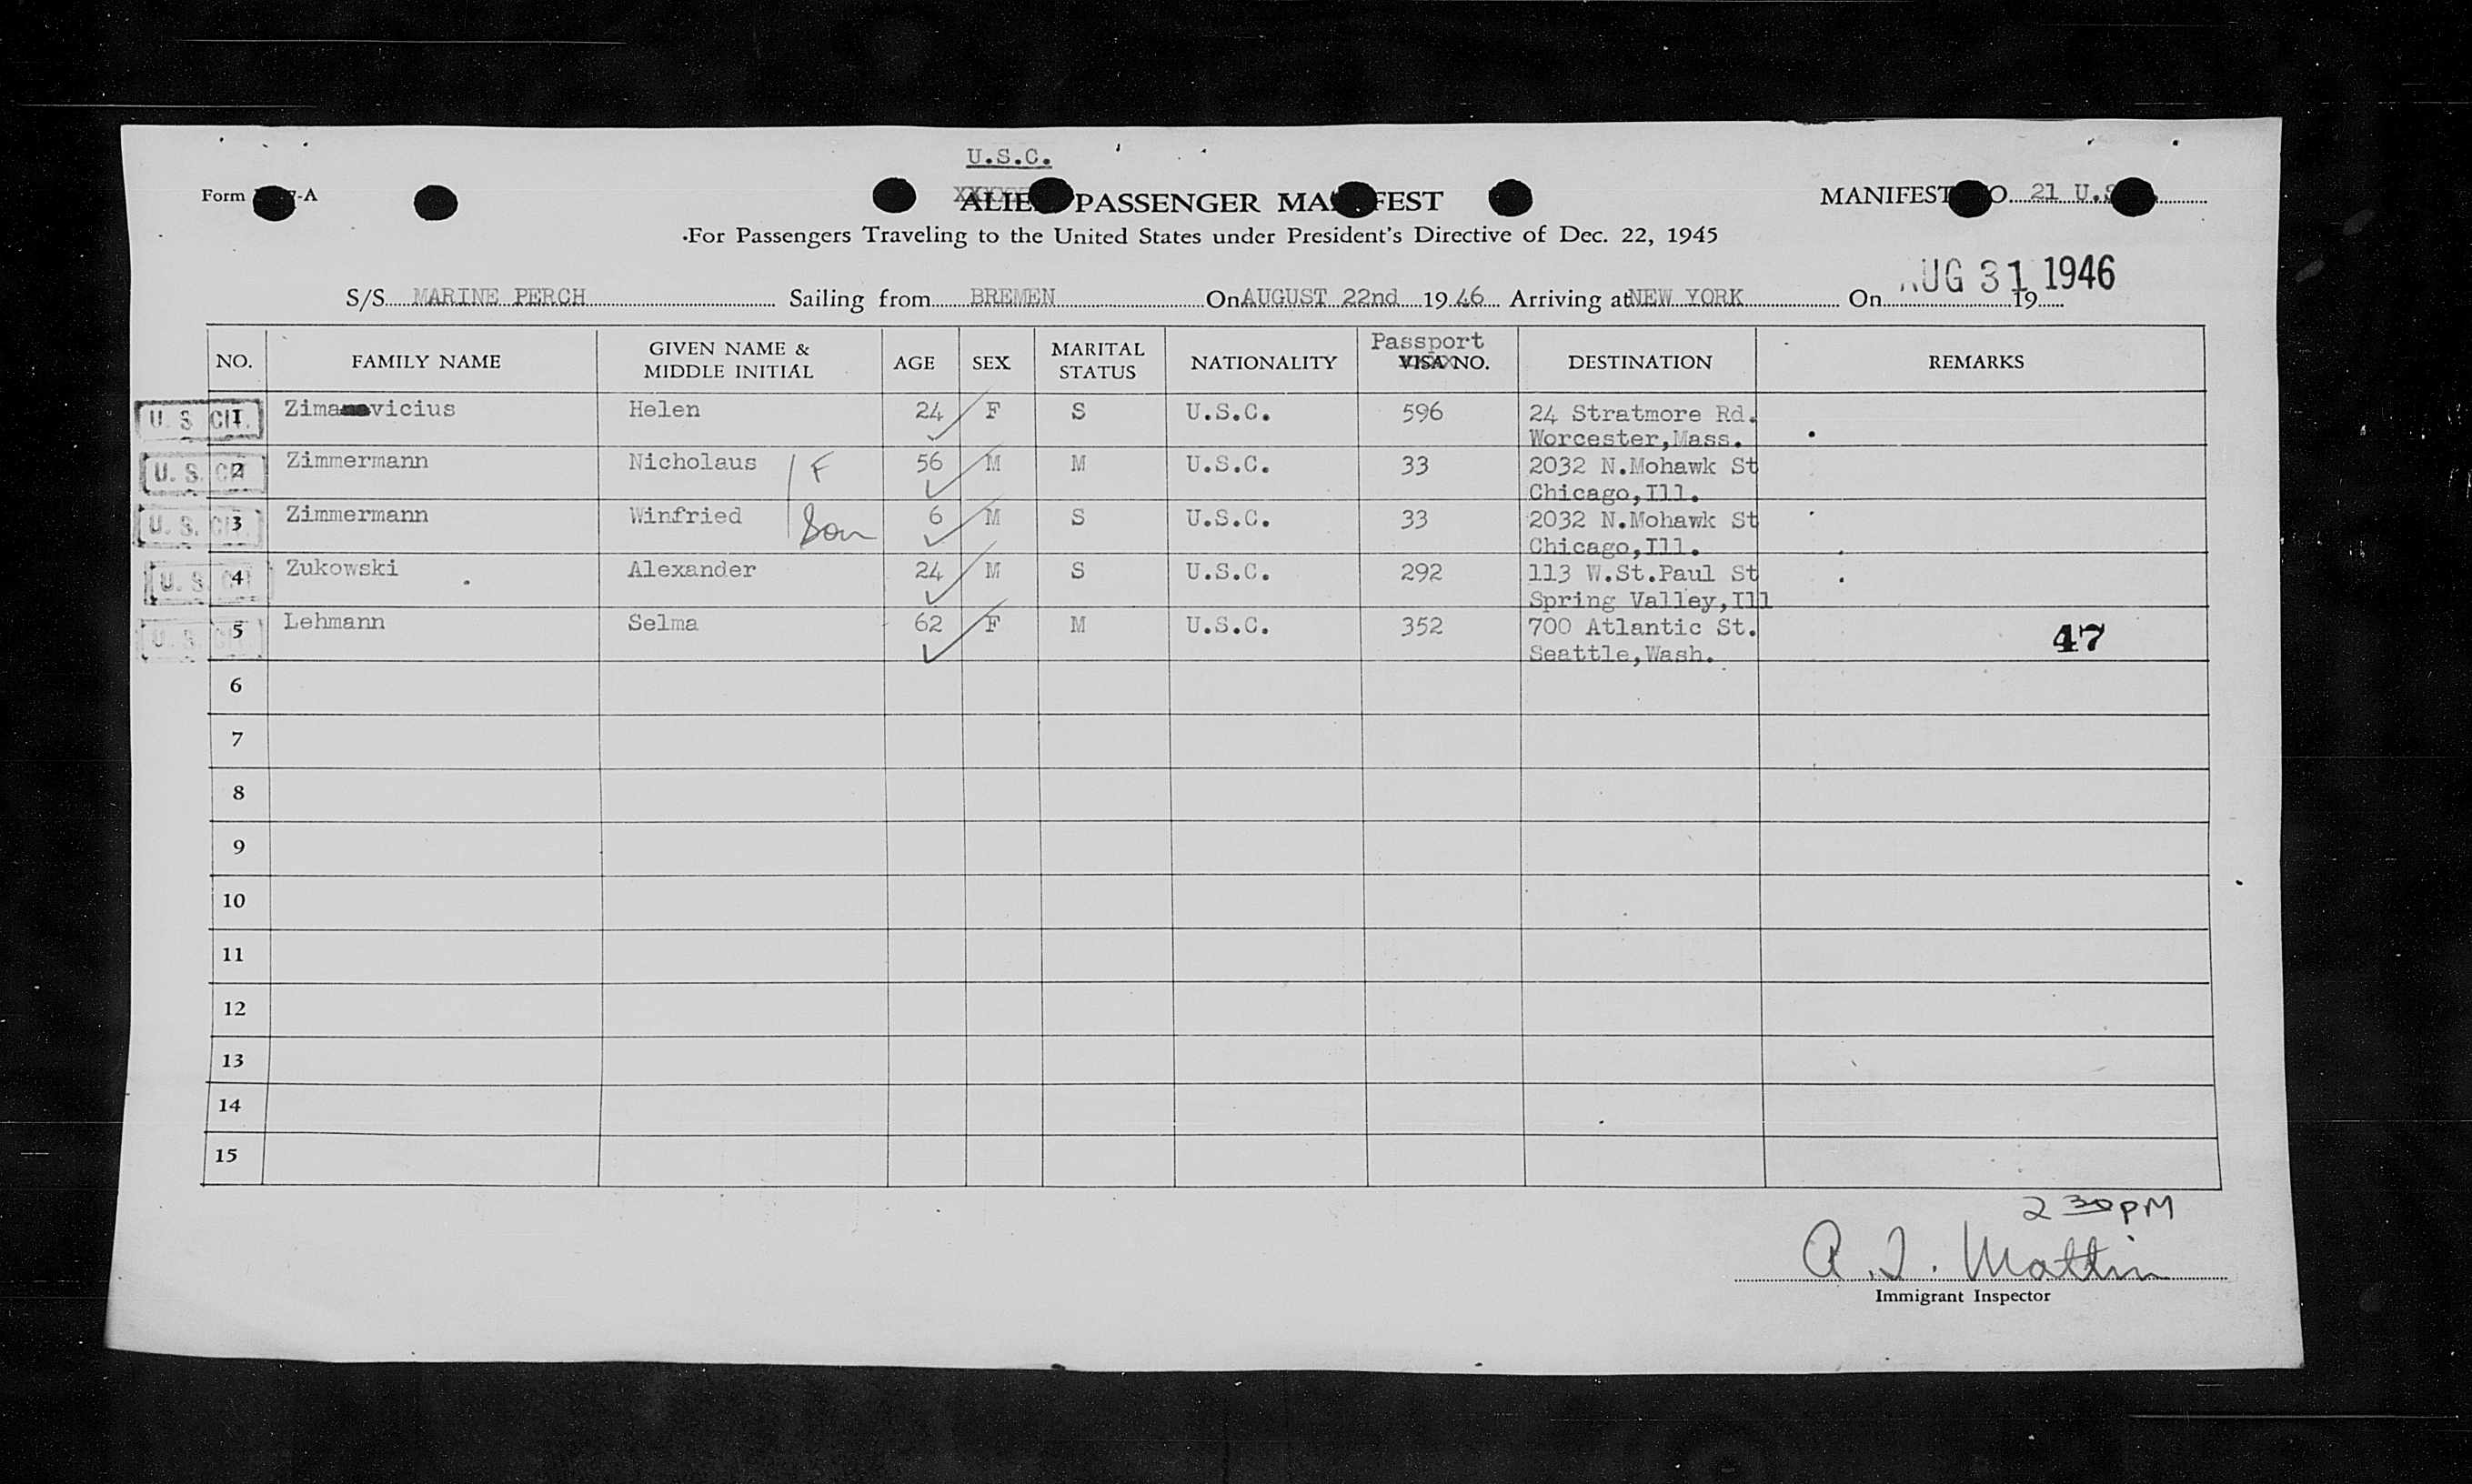 U.S.C.
Form -A
ALIE PASSENGER MA FEST
MANIFEST O. 21 U.S
For Passengers Traveling to the United States under President's Directive of Dec. 22, 1945
S/S MARINE PERCH Sailing from BREMEN On AUGUST 22nd 19 46 Arriving at NEW YORK On AUG 31 1946 19
NO. FAMILY NAME GIVEN NAME & MIDDLE INITIAL AGE SEX MARITAL STATUS NATIONALITY Passport VISA NO. DESTINATION REMARKS
U. S. CIT. 1 Zima vicius Helen 24 F S U.S.C. 596 24 Stratmore Rd.
Worcester,Mass.
U. S. CIT. 2 Zimmermann Nicholaus F 56 M M U.S.C. 33 2032 N.Mohawk St
Chicago,Ill.
U. S. CIT. 3 Zimmermann Winfried Son 6 M S U.S.C. 33 2032 N.Mohawk St
Chicago,Ill.
U. S. CIT. 4 Zukowski Alexander 24 M S U.S.C. 292 113 W.St.Paul St
Spring Valley,Ill
U. S. 5 Lehmann Selma 62 F M U.S.C. 352 700 Atlantic St.
Seattle,Wash.
47
6
7
8
9
10
11
12
13
14
15
2 30 PM
Immigrant Inspector